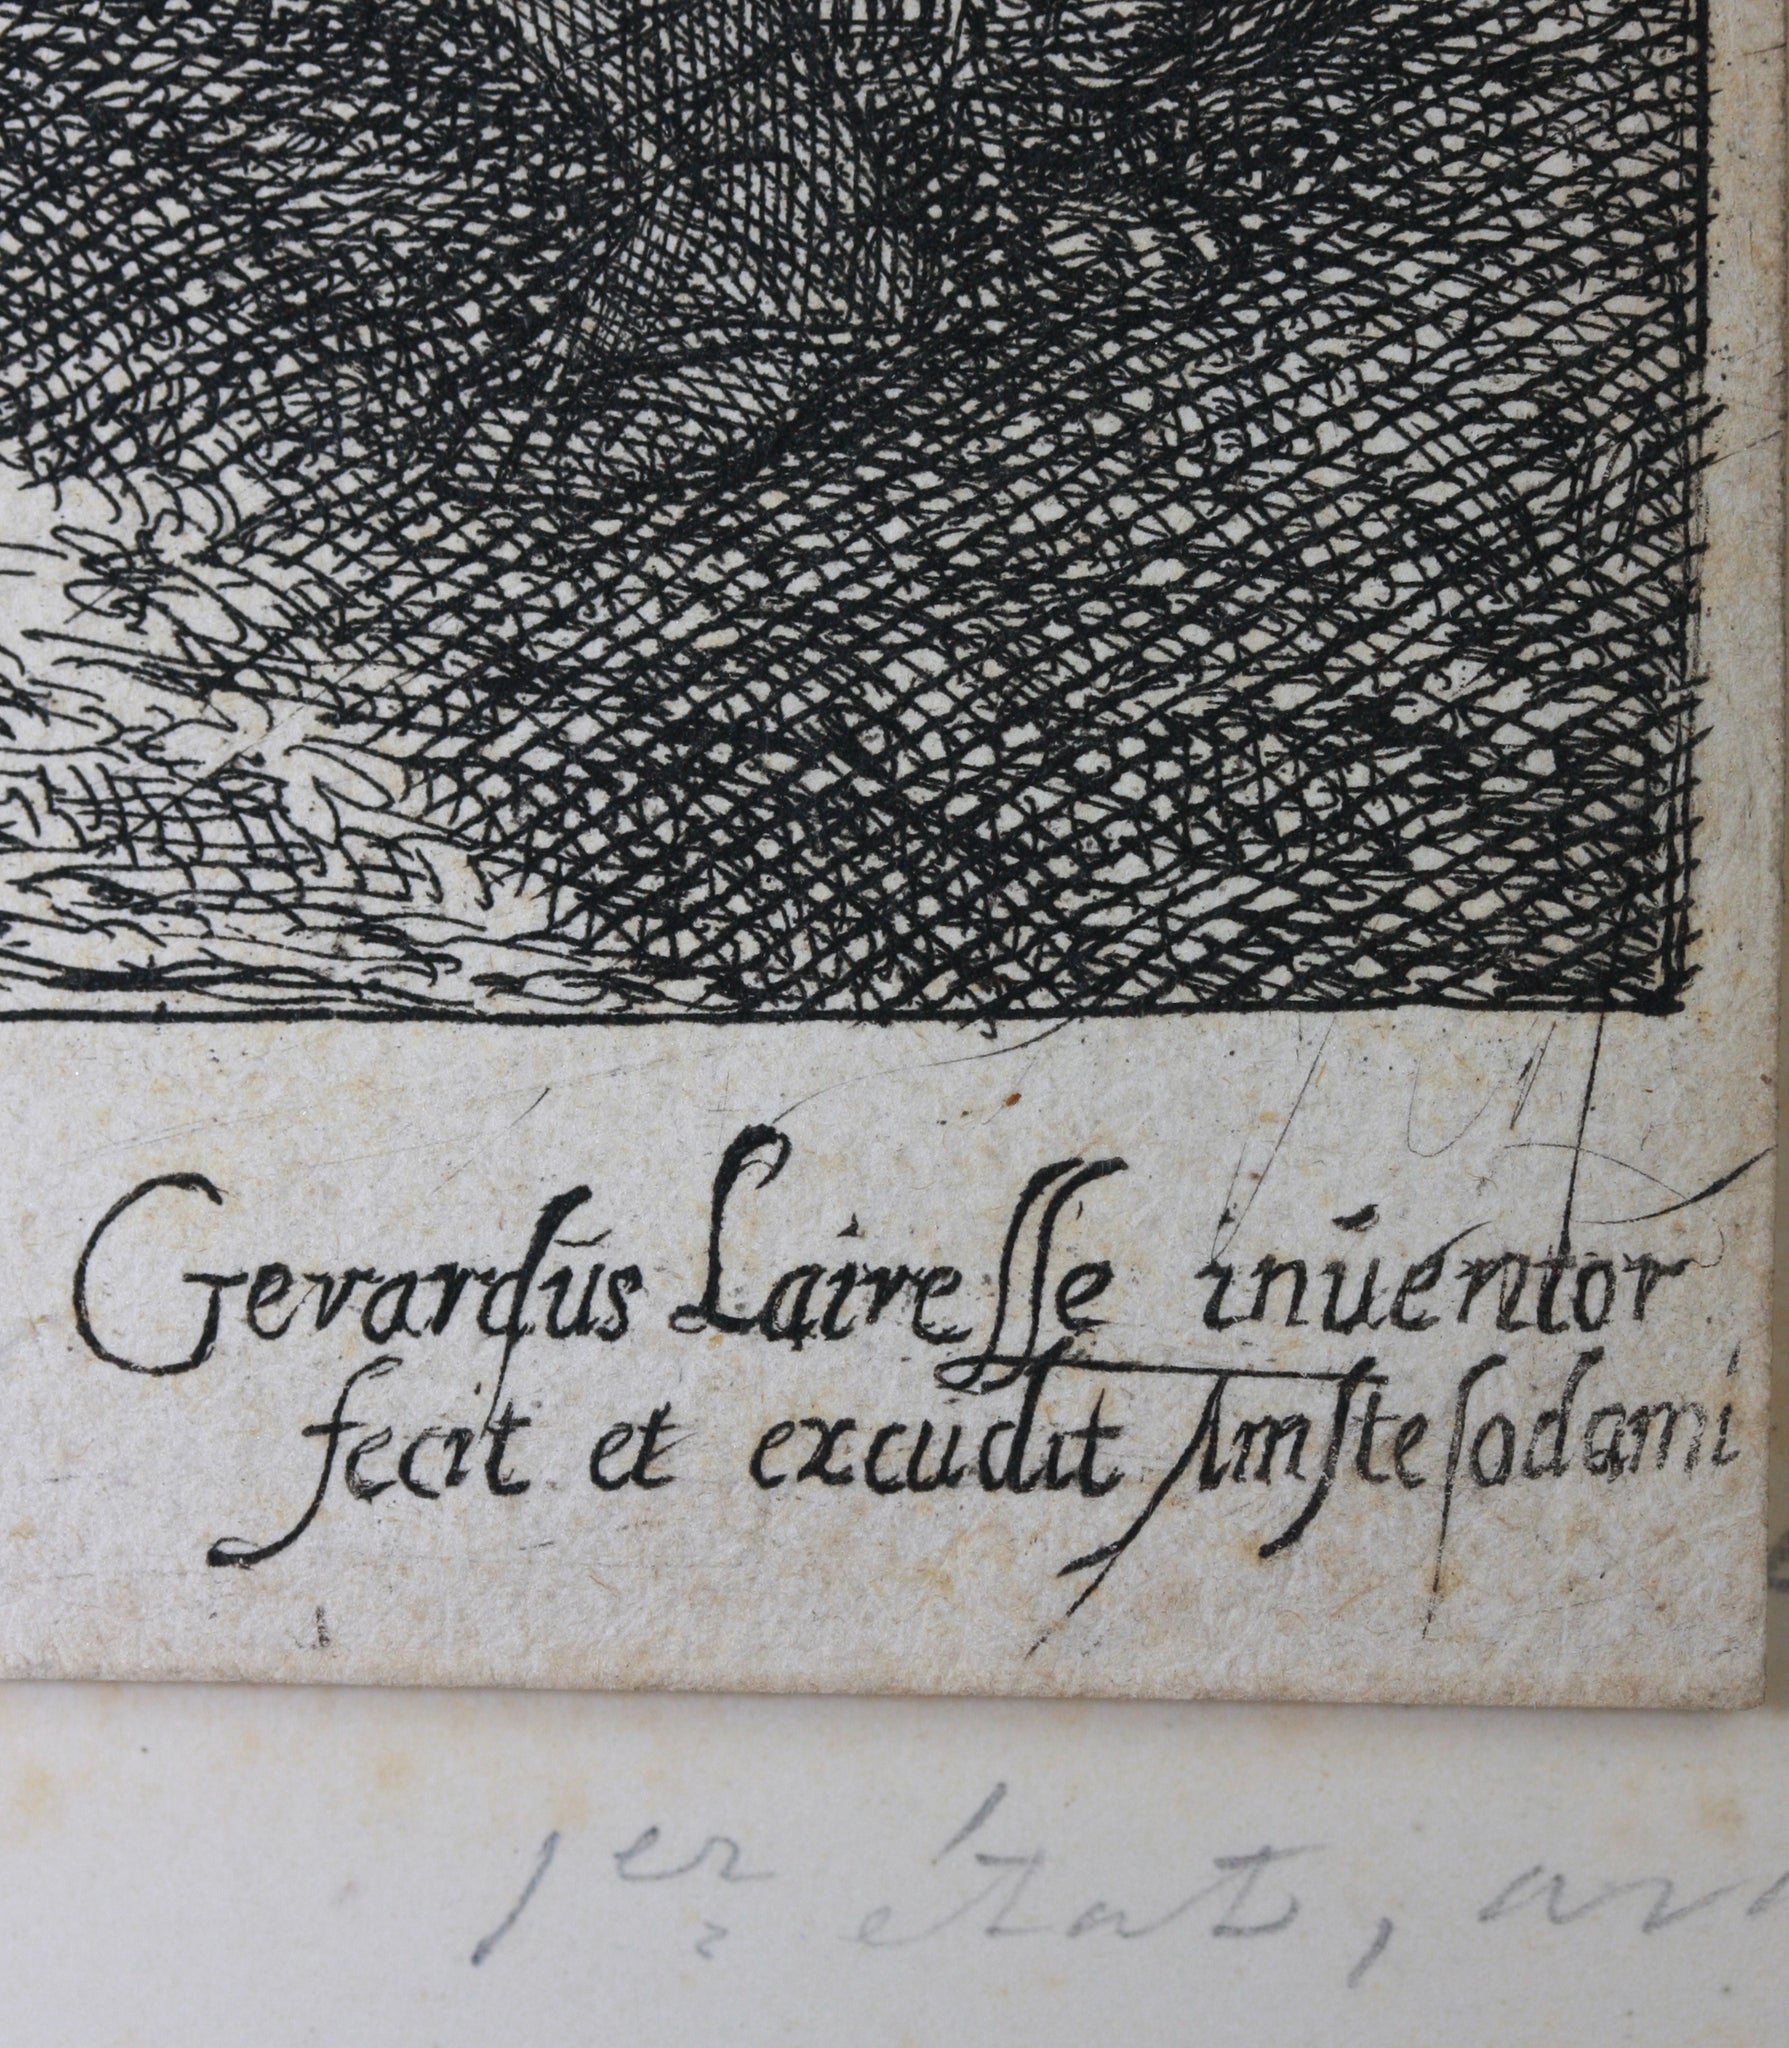 Gerardūs Laireſſe inūentor
fecit et excudit Amſtelodami
1er état,